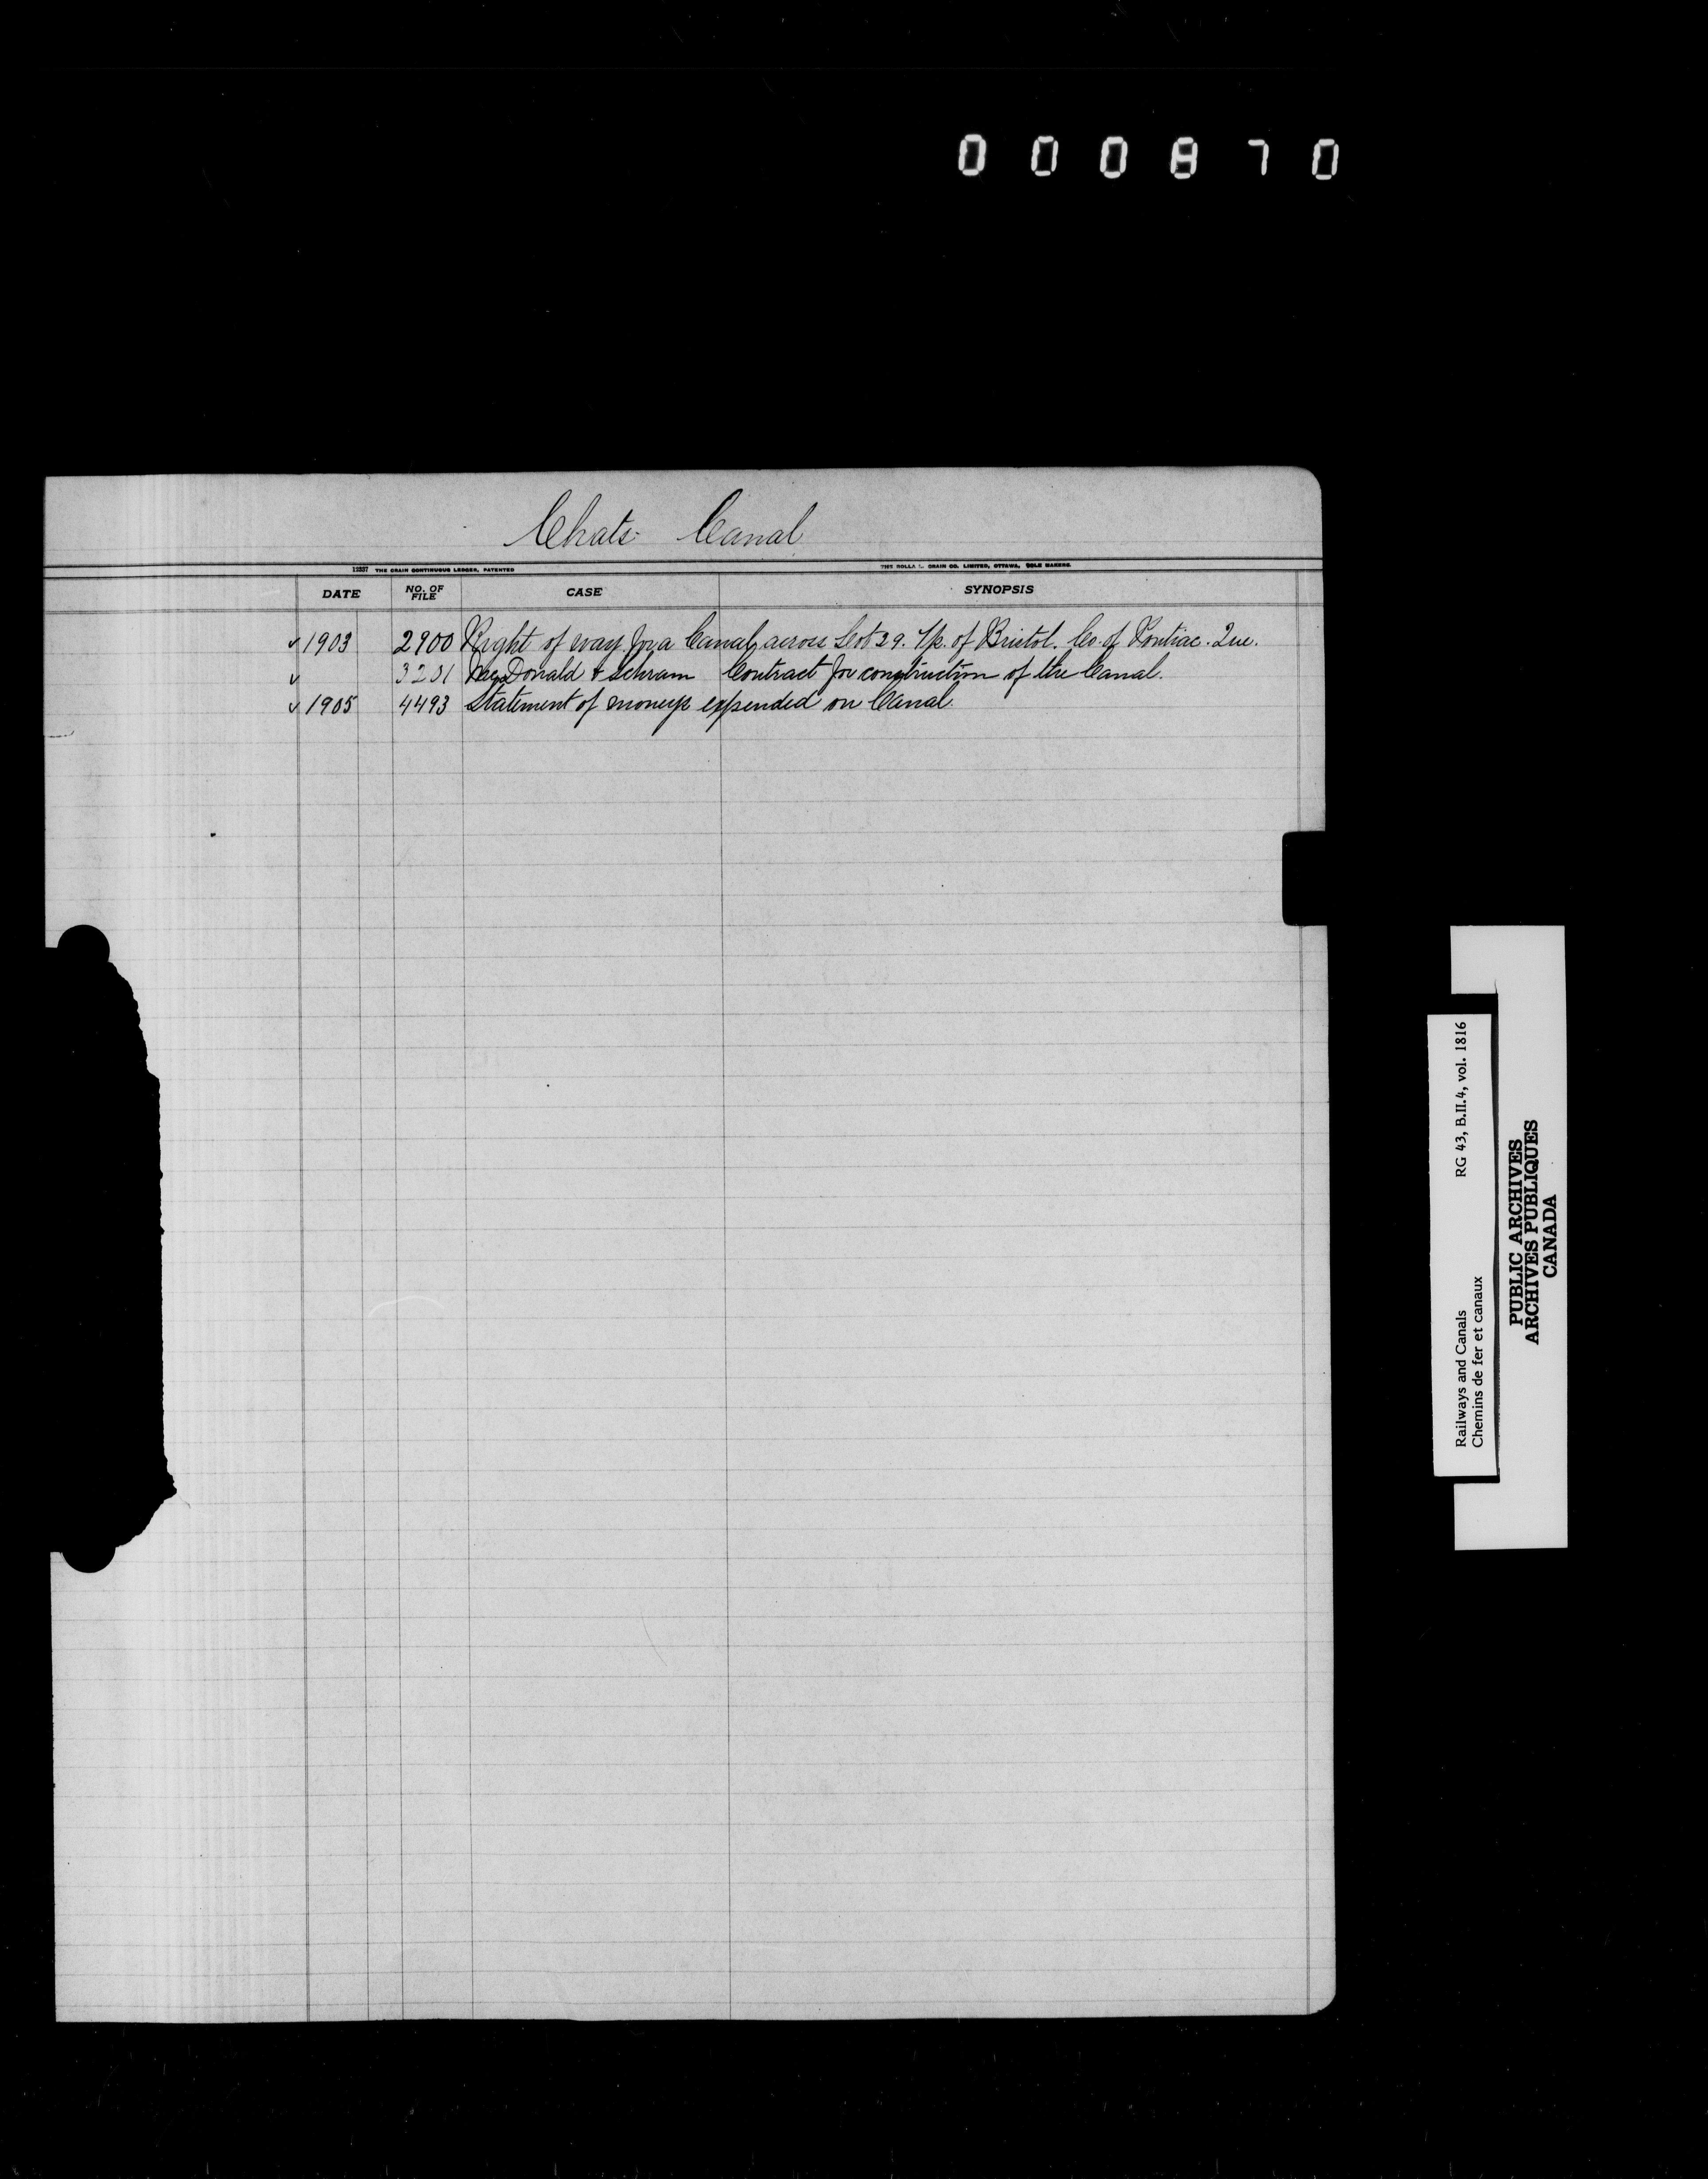 000870
Chats Canal
12337 THE CRAIN CONTINUOUS LEDGER, PATENTED
THE ROLLA L. CRAIN CO. LIMITED, OTTAWA, SOLE MAKERS
DATE NO. OF FILE CASE SYNOPSIS
✓ 1903 2900 Right of way for a Canal, across Lot 29. Tp. of Bristol. Co. of Pontiac. Que.
✓ 3201 McDonald & Schram Contract for construction of the Canal.
✓ 1905 4493 Statement of moneys expended on Canal.
Railways and Canals RG 43, B.II.4, vol. 1816
Chemins de fer et canaux
PUBLIC ARCHIVES
ARCHIVES PUBLIQUES
CANADA